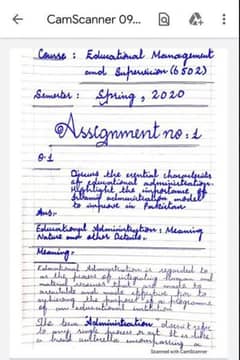 CamScanner 09...
Course : Educational Management
and Supervision (6502)
Semester : Spring, 2020
Assignment no : 1
Q.1
Discuss the essential characteristics
of educational administration.
Highlight the importance of
Islamic administration model
to improve in Pakistan
Ans:-
Educational Administration ; Meaning
Nature and other Details.
Meaning:-
Educational Administration is regarded to
as the process of integrating human and
material resources that are made to
available and made effective for to
achieving the purposes of a programme
of an educational institution
The term Administration doesn't refer
to any single process or act. It is like
a broad umbrella encompassing a
Scanned with CamScanner